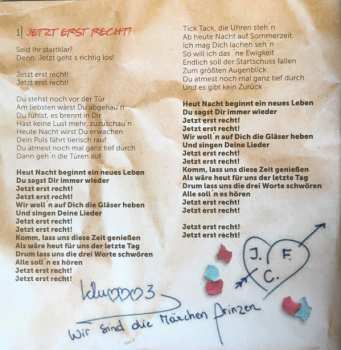 1| JETZT ERST RECHT!
Seid Ihr startklar?
Denn: Jetzt geht´s richtig los!
Jetzt erst recht!
Jetzt erst recht!
Du stehst noch vor der Tür
Am liebsten wärst Du abgehau´n
Du fühlst, es brennt in Dir
Hast keine Lust mehr, zuzuschau´n
Heute Nacht wirst Du erwachen
Dein Puls fährt tierisch rauf
Du atmest noch mal ganz tief durch
Dann geh´n die Türen auf
Heut Nacht beginnt ein neues Leben
Du sagst Dir immer wieder
Jetzt erst recht!
Jetzt erst recht!
Wir woll´n auf Dich die Gläser heben
Und singen Deine Lieder
Jetzt erst recht!
Jetzt erst recht!
Komm, lass uns diese Zeit genießen
Als wäre heut für uns der letzte Tag
Drum lass uns die drei Worte schwören
Alle soll´n es hören
Jetzt erst recht!
Jetzt erst recht!
Tick Tack, die Uhren steh´n
Ab heute Nacht auf Sommerzeit
Ich mag Dich lachen seh´n
So will ich das ´ne Ewigkeit
Endlich soll der Startschuss fallen
Zum größten Augenblick
Du atmest noch mal ganz tief durch
Und es gibt kein Zurück
Heut Nacht beginnt ein neues Leben
Du sagst Dir immer wieder
Jetzt erst recht!
Jetzt erst recht!
Wir woll´n auf Dich die Gläser heben
Und singen Deine Lieder
Jetzt erst recht!
Jetzt erst recht!
Komm, lass uns diese Zeit genießen
Als wäre heut für uns der letzte Tag
Drum lass uns die drei Worte schwören
Alle soll´n es hören
Jetzt erst recht!
Jetzt erst recht!
Jetzt erst recht!
Jetzt erst recht!
J. F.
C.
Wir sind die Märchen prinzen